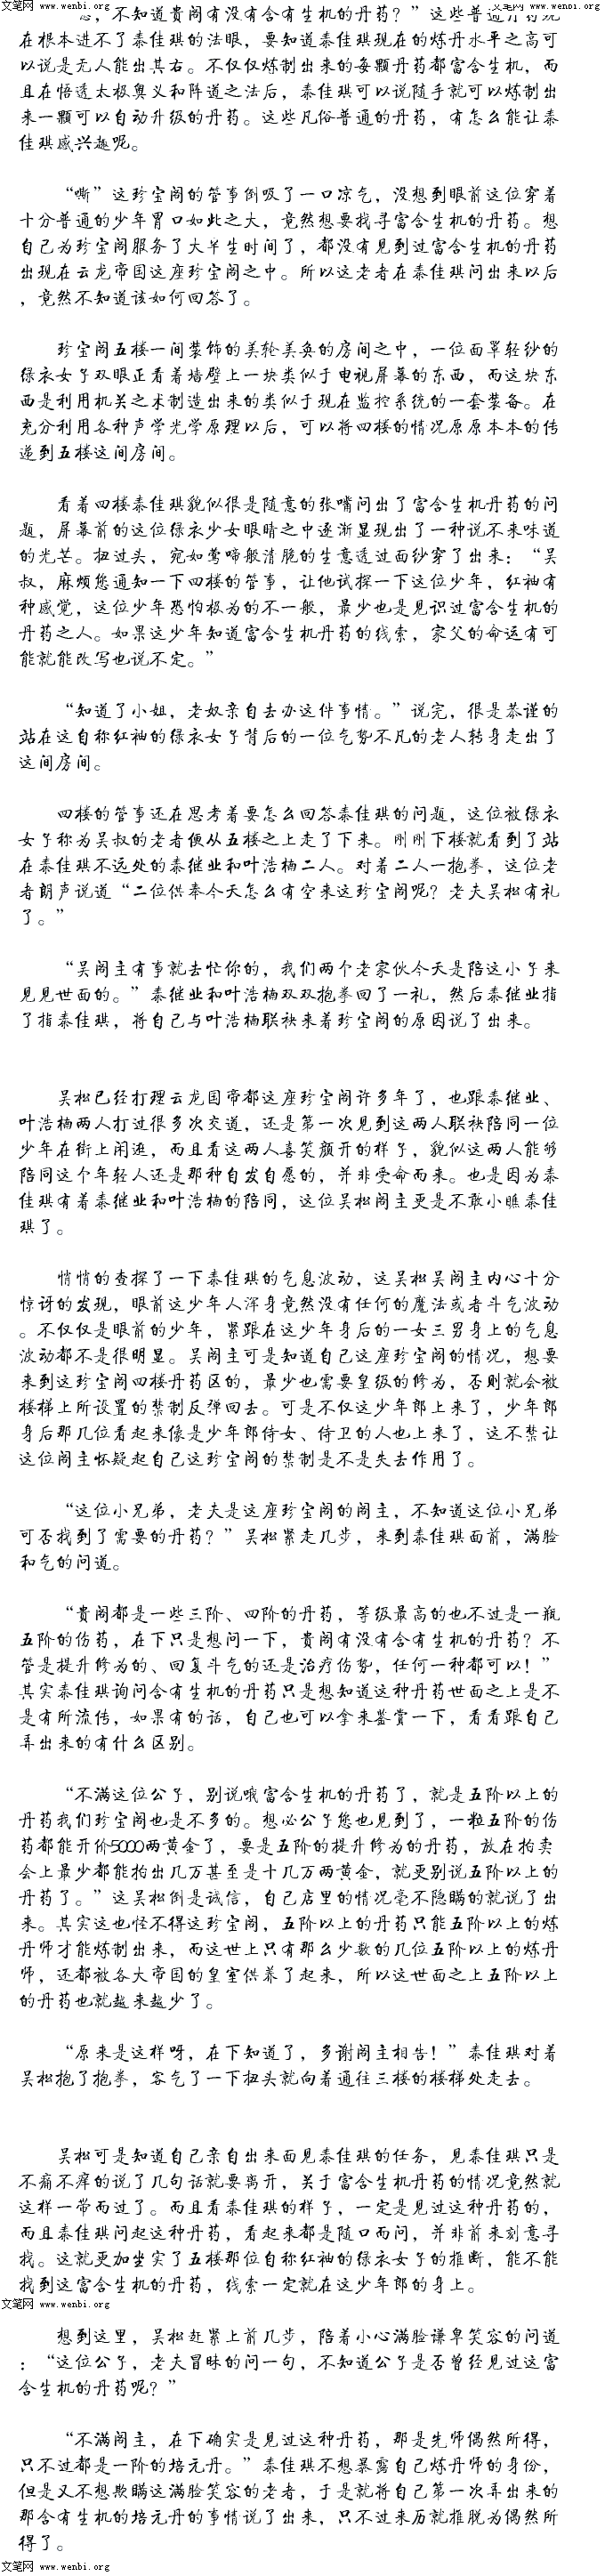 文笔网 www.wenbi.org 文笔网 www.wenbi.org
，不知道贵阁有没有含有生机的丹药？”这些普通丹药现
在根本进不了秦佳琪的法眼，要知道秦佳琪现在的炼丹水平之高可
以说是无人能出其右。不仅仅炼制出来的每颗丹药都富含生机，而
且在悟透太极奥义和阵道之法后，秦佳琪可以说随手就可以炼制出
来一颗可以自动升级的丹药。这些凡俗普通的丹药，有怎么能让秦
佳琪感兴趣呢。
“嘶”这珍宝阁的管事倒吸了一口凉气，没想到眼前这位穿着
十分普通的少年胃口如此之大，竟然想要找寻富含生机的丹药。想
自己为珍宝阁服务了大半生时间了，都没有见到过富含生机的丹药
出现在云龙帝国这座珍宝阁之中。所以这老者在秦佳琪问出来以后
，竟然不知道该如何回答了。
珍宝阁五楼一间装饰的美轮美奂的房间之中，一位面罩轻纱的
绿衣女子双眼正看着墙壁上一块类似于电视屏幕的东西，而这块东
西是利用机关之术制造出来的类似于现在监控系统的一套装备。在
充分利用各种声学光学原理以后，可以将四楼的情况原原本本的传
递到五楼这间房间。
看着四楼秦佳琪貌似很是随意的张嘴问出了富含生机丹药的问
题，屏幕前的这位绿衣少女眼睛之中逐渐显现出了一种说不来味道
的光芒。扭过头，宛如莺啼般清脆的生意透过面纱穿了出来：“吴
叔，麻烦您通知一下四楼的管事，让他试探一下这位少年，红袖有
种感觉，这位少年恐怕极为的不一般，最少也是见识过富含生机的
丹药之人。如果这少年知道富含生机丹药的线索，家父的命运有可
能就能改写也说不定。”
“知道了小姐，老奴亲自去办这件事情。”说完，很是恭谨的
站在这自称红袖的绿衣女子背后的一位气势不凡的老人转身走出了
这间房间。
四楼的管事还在思考着要怎么回答秦佳琪的问题，这位被绿衣
女子称为吴叔的老者便从五楼之上走了下来。刚刚下楼就看到了站
在秦佳琪不远处的秦继业和叶浩楠二人。对着二人一抱拳，这位老
者朗声说道“二位供奉今天怎么有空来这珍宝阁呢？老夫吴松有礼
了。”
“吴阁主有事就去忙你的，我们两个老家伙今天是陪这小子来
见见世面的。”秦继业和叶浩楠双双抱拳回了一礼，然后秦继业指
了指秦佳琪，将自己与叶浩楠联袂来着珍宝阁的原因说了出来。
吴松已经打理云龙国帝都这座珍宝阁许多年了，也跟秦继业、
叶浩楠两人打过很多次交道，还是第一次见到这两人联袂陪同一位
少年在街上闲逛，而且看这两人喜笑颜开的样子，貌似这两人能够
陪同这个年轻人还是那种自发自愿的，并非受命而来。也是因为秦
佳琪有着秦继业和叶浩楠的陪同，这位吴松阁主更是不敢小瞧秦佳
琪了。
悄悄的查探了一下秦佳琪的气息波动，这吴松吴阁主内心十分
惊讶的发现，眼前这少年人浑身竟然没有任何的魔法或者斗气波动
。不仅仅是眼前的少年，紧跟在这少年身后的一女三男身上的气息
波动都不是很明显。吴阁主可是知道自己这座珍宝阁的情况，想要
来到这珍宝阁四楼丹药区的，最少也需要皇级的修为，否则就会被
楼梯上所设置的禁制反弹回去。可是不仅这少年郎上来了，少年郎
身后那几位看起来像是少年郎侍女、侍卫的人也上来了，这不禁让
这位阁主怀疑起自己这珍宝阁的禁制是不是失去作用了。
“这位小兄弟，老夫是这座珍宝阁的阁主，不知道这位小兄弟
可否找到了需要的丹药？”吴松紧走几步，来到秦佳琪面前，满脸
和气的问道。
“贵阁都是一些三阶、四阶的丹药，等级最高的也不过是一瓶
五阶的伤药，在下只是想问一下，贵阁有没有含有生机的丹药？不
管是提升修为的、回复斗气的还是治疗伤势，任何一种都可以！”
其实秦佳琪询问含有生机的丹药只是想知道这种丹药世面之上是不
是有所流传，如果有的话，自己也可以拿来鉴赏一下，看看跟自己
弄出来的有什么区别。
“不满这位公子，别说哦富含生机的丹药了，就是五阶以上的
丹药我们珍宝阁也是不多的。想必公子您也见到了，一粒五阶的伤
药都能开价5000两黄金了，要是五阶的提升修为的丹药，放在拍卖
会上最少都能拍出几万甚至是十几万两黄金，就更别说五阶以上的
丹药了。”这吴松倒是诚信，自己店里的情况毫不隐瞒的就说了出
来。其实这也怪不得这珍宝阁，五阶以上的丹药只能五阶以上的炼
丹师才能炼制出来，而这世上只有那么少数的几位五阶以上的炼丹
师，还都被各大帝国的皇室供养了起来，所以这世面之上五阶以上
的丹药也就越来越少了。
“原来是这样呀，在下知道了，多谢阁主相告！”秦佳琪对着
吴松抱了抱拳，客气了一下扭头就向着通往三楼的楼梯处走去。
吴松可是知道自己亲自出来面见秦佳琪的任务，见秦佳琪只是
不痛不痒的说了几句话就要离开，关于富含生机丹药的情况竟然就
这样一带而过了。而且看秦佳琪的样子，一定是见过这种丹药的，
而且秦佳琪问起这种丹药，看起来都是随口而问，并非前来刻意寻
找。这就更加坐实了五楼那位自称红袖的绿衣女子的推断，能不能
找到这富含生机的丹药，线索一定就在这少年郎的身上。
文笔网 www.wenbi.org
想到这里，吴松赶紧上前几步，陪着小心满脸谦卑笑容的问道
：“这位公子，老夫冒昧的问一句，不知道公子是否曾经见过这富
含生机的丹药呢？”
“不满阁主，在下确实是见过这种丹药，那是先师偶然所得，
只不过都是一阶的培元丹。”秦佳琪不想暴露自己炼丹师的身份，
但是又不想欺瞒这满脸笑容的老者，于是就将自己第一次弄出来的
那含有生机的培元丹的事情说了出来，只不过来历就推脱为偶然所
得了。
文笔网 www.wenbi.org